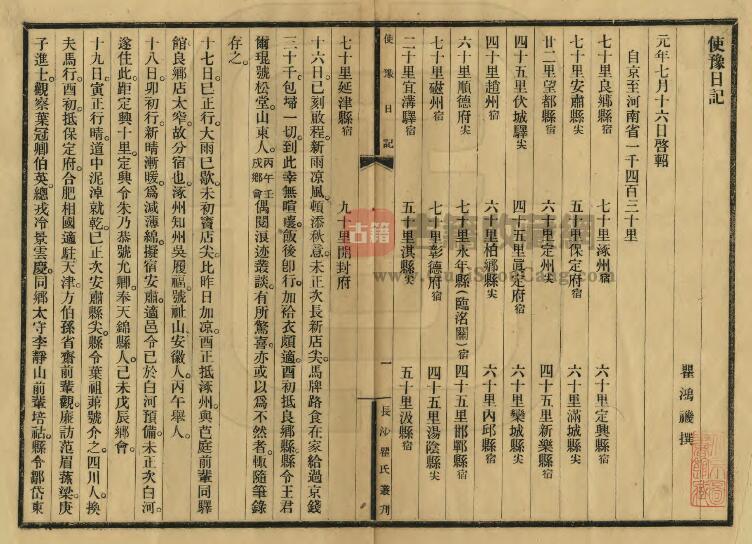 使豫日記
瞿鴻禨撰
元年七月十六日啓軺
自京至河南省一千四百三十里
七十里良鄉縣宿 七十里涿州宿 六十里定興縣宿
七十里安肅縣尖 五十里保定府宿 六十里滿城縣
廿二里望都縣宿 六十里定州尖 四十五里新樂縣宿
四十五里伏城驛尖 四十五里眞定府宿 六十里欒城縣尖
四十里趙州宿 六十里柏鄉縣尖 六十里內邱縣宿
六十里順德府尖 七十里永年縣(臨洺關)宿 四十五里邯鄲縣
七十里磁州宿 七十里彰德府宿 四十五里湯陰縣尖
二十里宜溝驛宿 五十里淇縣尖 五十里汲縣宿
使豫日記 一 長沙瞿氏叢刊
七十里延津縣宿 九十里開封府
十六日己刻啟程新雨凉風頓添秋意未正次長新店尖馬牌路食在家給過京錢
三十千包埽一切到此幸無喧嚷飯後卽行加袷衣頗適酉初抵良鄉縣縣令王君
爾琨號松堂山東人丙午壬戌鄉會偶閱浪迹叢談有所驚喜亦或以爲不然者輙隨筆錄
存之
十七日巳正行大雨巳歇未初竇店尖比昨日加凉酉正抵涿州與芭庭前輩同驛
館良鄉店太窄故分宿也涿州知州吳履福號祉山安徽人丙午舉人
十八日卯初行新晴漸暖爲減薄綿擬宿安肅適邑令已於白河預備未正次白河
遂住此距定興十里定興令朱乃恭號允卿奉天錦縣人己未戊辰鄉會
十九日寅正行晴道中泥淖就乾巳正次安肅縣尖縣令葉祖茀號介之四川人換
夫馬行酉初抵保定府合肥相國適駐天津方伯孫省齋前輩觀廉訪范眉蓀梁庚
子進士觀察葉冠卿伯英總戎冷景雲慶同鄉太守李靜山前輩培祜縣令鄒岱東
古籍